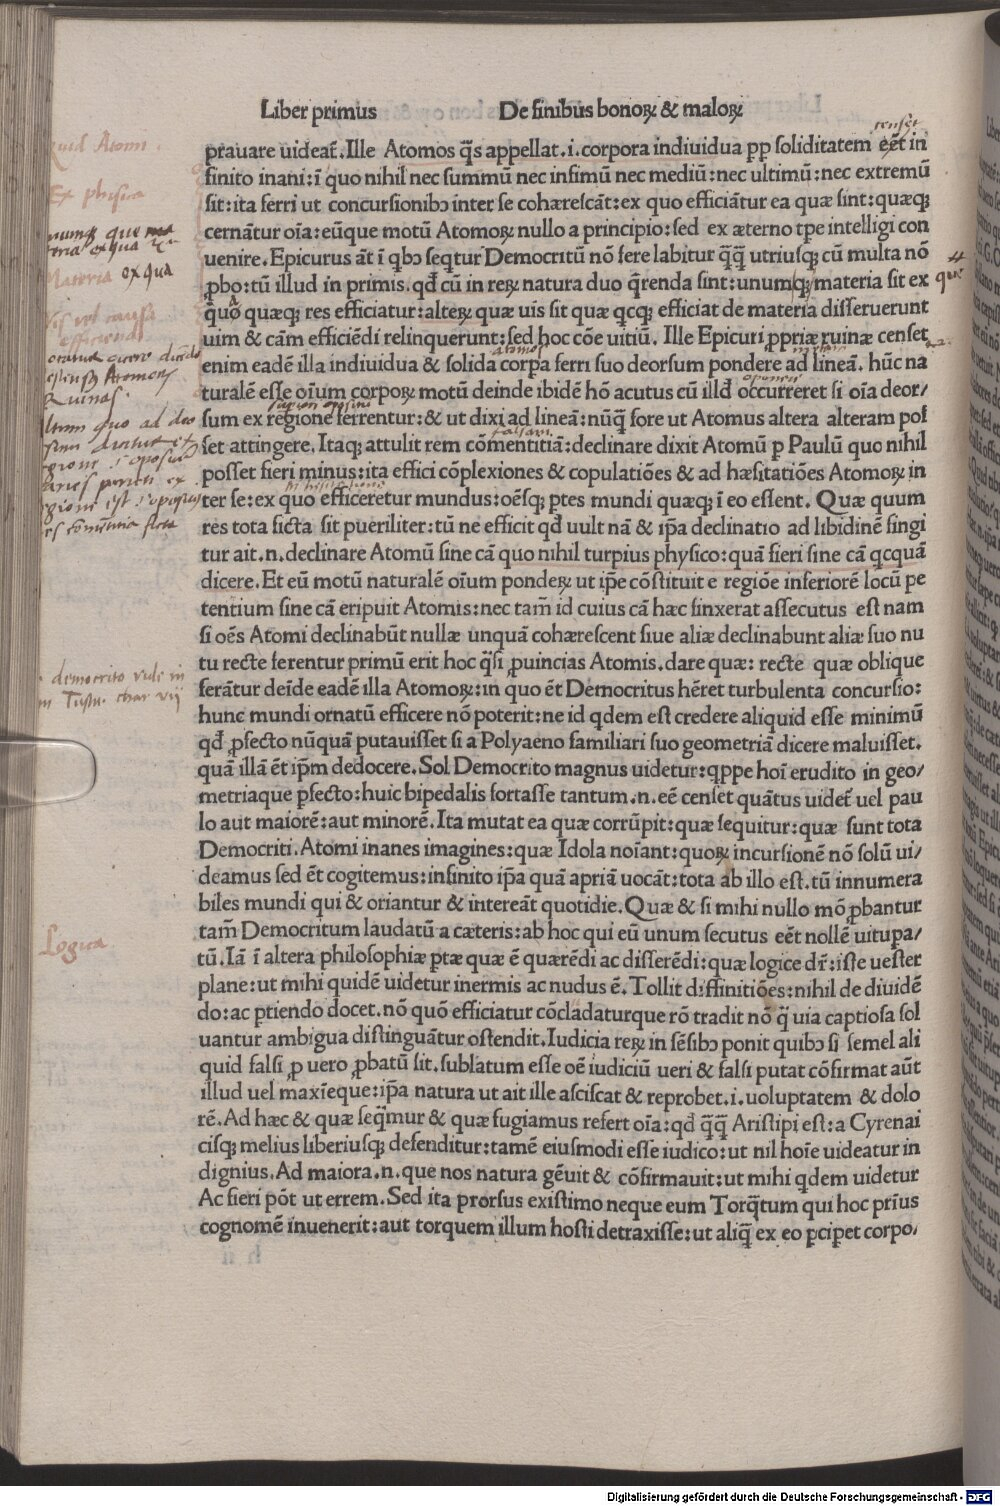 Liber primus De finibus bonoꝝ & maloꝝ
censet
prauare uideat̃. Ille Atomos q̃s appellat .i. corpora indiuidua pp soliditatem eēt in
finito inani: ī quo nihil nec summū nec infimū nec mediū: nec ultimū: nec extremū
sit: ita ferri ut concursionibꝰ inter se cohærescāt: ex quo efficiātur ea quæ sint: quæqꝫ
cernātur oīa: eūque motū Atomoꝝ nullo a principio: sed ex æterno tpe intelligi con
uenire. Epicurus āt ī qbꝰ seqtur Democritū nō fere labitur q̃q̃ utriusqꝫ cū multa nō
ꝓbo: tū illud in primis. qđ cū in reꝝ natura duo q̃renda sint: unum qꝫ materia sit ex
q̃ quæqꝫ res efficiatur: alteꝝ quæ uis sit quæ qcqꝫ efficiat de materia disseruerunt
uim & cām efficiēdi relinquerunt: sed hoc cōe uitiū. Ille Epicuri ꝓpriæ ruinæ censet
atomos
enim eadē illa indiuidua & solida corpa ferri suo deorsum pondere ad lineā. hūc na
turalē esse oīum corpoꝝ motū deinde ibidē hō acutus cū illđ occurreret si oīa deor/
sum ex regione ferrentur: & ut dixi ad lineā: nūq̃ fore ut Atomus altera alteram pos
set attingere. Itaqꝫ attulit rem cōmentitiā: declinare dixit Atomū ꝑ Paulū quo nihil
posset fieri minus: ita effici cōplexiones & copulatiōes & ad hæsitatiōes Atomoꝝ in
ter se: ex quo efficeretur mundus: oēsqꝫ ptes mundi quæqꝫ ī eo essent. Quæ quum
res tota ficta sit pueriliter: tū ne efficit qđ uult nā & ip̄a declinatio ad libidinē fingi
tur ait .n. declinare Atomū sine cā quo nihil turpius physico: quā fieri sine cā qcquā
dicere. Et eū motū naturalē oīum pondeꝝ ut ip̄e cōstituit e regiōe inferiorē locū pe
tentium sine cā eripuit Atomis: nec tam̄ id cuius cā hæc finxerat assecutus est nam
si oēs Atomi declinabūt nullæ unquā cohærescent siue aliæ declinabunt aliæ suo nu
tu recte ferentur primū erit hoc q̃si ꝓuincias Atomis. dare quæ: recte quæ oblique
ferātur deīde eadē illa Atomoꝝ: in quo ēt Democritus hēret turbulenta concursio:
hunc mundi ornatū efficere nō poterit: ne id qdem est credere aliquid esse minimū
qđ ꝓfecto nūquā putauisset si a Polyaeno familiari suo geometriā dicere maluisset.
quā illā ēt ip̄m dedocere. Sol Democrito magnus uidetur: qppe hoī erudito in geo/
metriaque pfecto: huic bipedalis fortasse tantum .n. eē censet quātus uidet̃ uel pau
lo aut maiorē: aut minorē. Ita mutat ea quæ corrūpit: quæ sequitur: quæ sunt tota
Democriti. Atomi inanes imagines: quæ Idola noīant: quoꝝ incursionē nō solū ui/
deamus sed ēt cogitemus: infinito ip̄a quā apriā uocāt: tota ab illo est. tū innumera
biles mundi qui & oriantur & intereāt quotidie. Quæ & si mihi nullo mō ꝓbantur
tam̄ Democritum laudatū a cæteris: ab hoc qui eū unum secutus eēt nollē uitupa/
tū. Iā ī altera philosophiæ ptæ quæ ē quærēdi ac disserēdi: quæ logice dr̄: iste uester
plane: ut mihi quidē uidetur inermis ac nudus ē. Tollit diffinitiōes: nihil de diuidē
do: ac ptiendo docet. nō quō efficiatur cōcladaturque rō tradit nō q̃ uia captiosa sol
uantur ambigua distinguātur ostendit. Iudicia reꝝ in sēsibꝰ ponit quibꝰ si semel ali
quid falsi ꝓ uero ꝓbatū sit. sublatum esse oē iudiciū ueri & falsi putat cōfirmat aūt
illud uel maxīeque: ip̄a natura ut ait ille asciscat & reprobet .i. uoluptatem & dolo
rē. Ad hæc & quæ seq̃mur & quæ fugiamus refert oīa: qđ q̃q̃ Aristipi est: a Cyrenai
cisqꝫ melius liberiusqꝫ defenditur: tamē eiusmodi esse iudico: ut nil hoīe uideatur in
dignius. Ad maiora .n. que nos natura gēuit & cōfirmauit: ut mihi qdem uidetur
Ac fieri pōt ut errem. Sed ita prorsus existimo neque eum Torq̃tum qui hoc prīus
cognomē inuenerit: aut torquem illum hosti detraxisse: ut aliq̃ ex eo pcipet corpo/
Ex phisica
Materia ex qua
democrito vide in
Logica
Digitalisierung gefördert durch die Deutsche Forschungsgemeinschaft - DFG